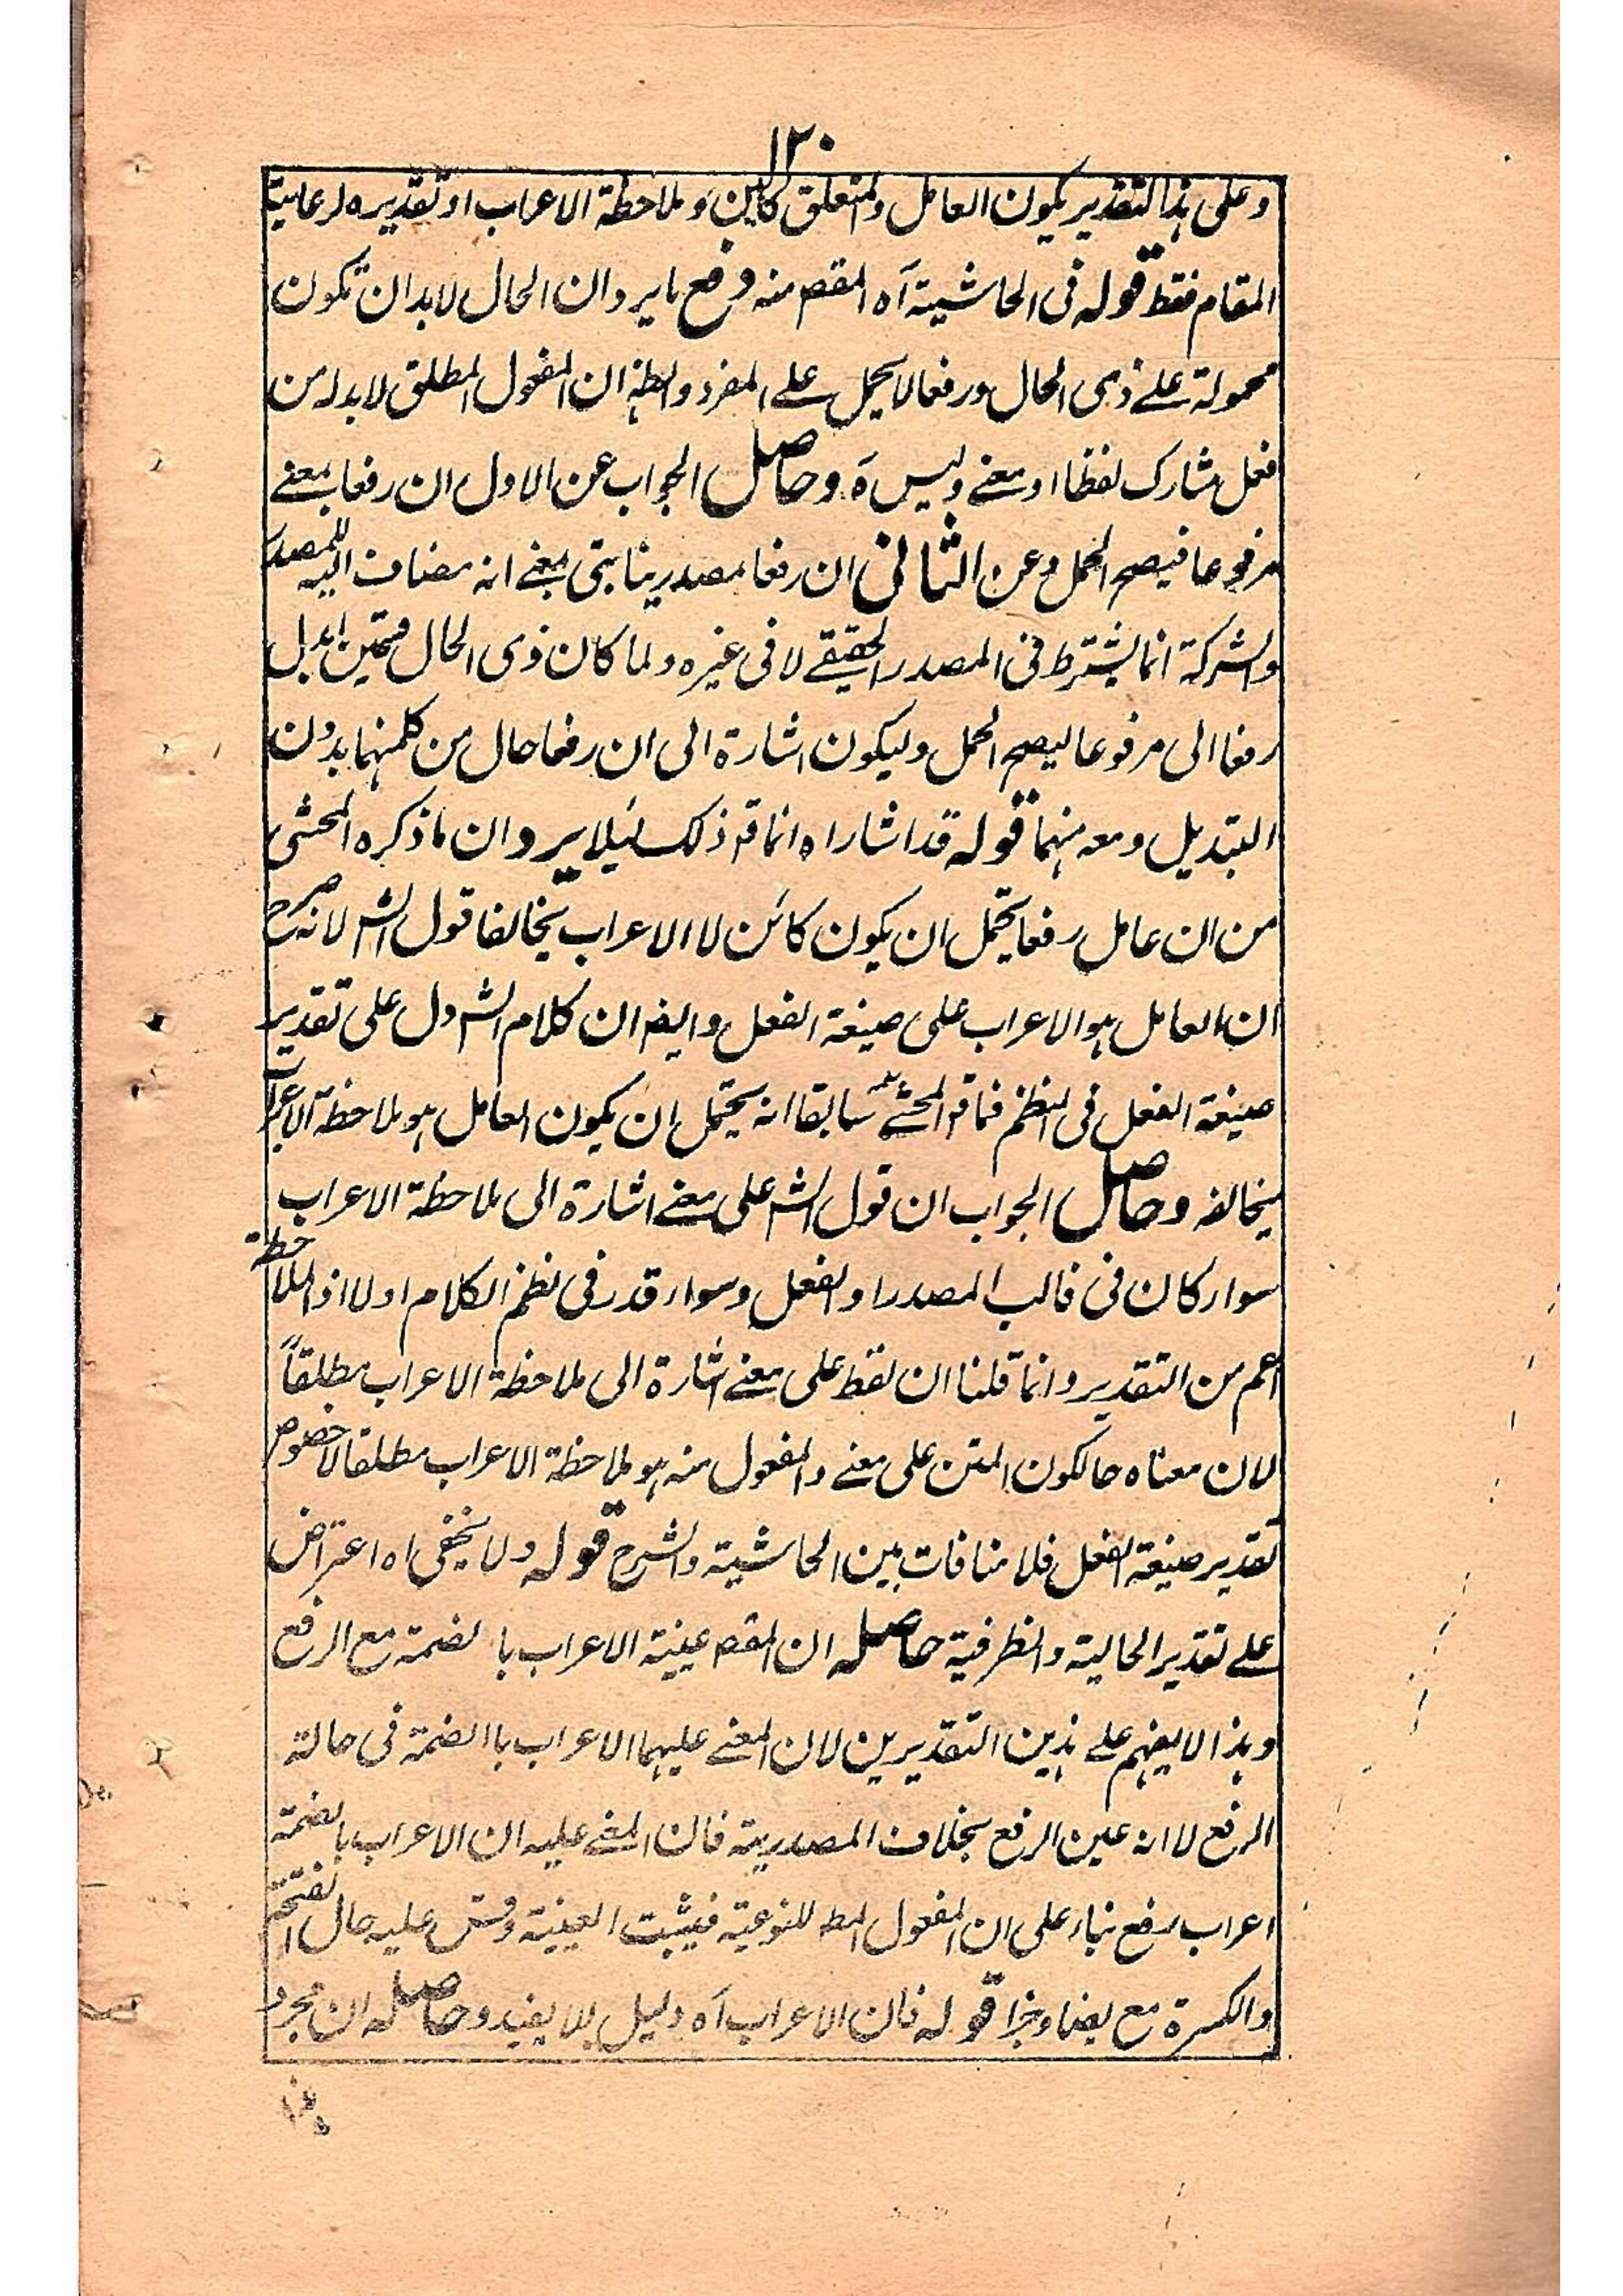 ١٢٠
وعلى هذا التقدير يكون العامل والمتعلق كائين وملاحظة الاعراب او تقديره لرعاية
المقام فقط قوله فى الحاشية آه المقصم منه دفع مايرد ان الحال لابد ان تكون
محمولة على ذى الحال ورفعا لا يحمل على المفرد وايضا ان المفعول المطلق لابد له من
فعل مشارك لفظا او معنى وليس ه وحاصل الجواب عن الاول ان رفعا بمعنى
مرفوعا فيصح الحمل وعن الثانى ان رفعا مصدر بمعنى انه مضاف اليه للمصدر
والشركة انما يشترط فى المصدر الحقيقى لا فى غيره ولما كان ذى الحال ابدل
رفعا الى مرفوعا ليصح الحمل وليكون اشارة الى ان رفعا حال من كلمنهما بدون
التبديل ومعه منهما قوله قد اشار اه انما قر ذلك ليلا يرد ان ما ذكره المحشى
من ان عامل رفعا يحتمل ان يكون كائن لا الاعراب يخالفا قول الشر لانه صرح
ان العامل هو الاعراب على صيغة الفعل وايضر ان كلام الشر دل على تقدير
صيغة الفعل فى النظم فما قر المحشى سابقا انه يحتمل ان يكون العامل هو ملاحظة الاعراب
يخالفه وحاصل الجواب ان قول الشر على معنى اشارة الى ملاحظة الاعراب
سواء كان فى قالب المصدر او الفعل وسواء قدر فى نظم الكلام او لا اذ الملاحظة
اعم من التقدير وانما قلنا ان لفظ على معنى اشارة الى ملاحظة الاعراب مطلقاً
لان معناه حالكون المتن على معنى والمفعول منه هو ملاحظة الاعراب مطلقا لا خصوص
تقدير صيغة الفعل فلا منافات بين الحاشية والشرح قوله ولا يخفى اه اعتراض
على تقدير الحالية والظرفية حاصله ان المقصم عينية الاعراب بالضمة مع الرفع
وهذا لا يفهم على هذين التقديرين لان المعنى عليهما الاعراب باالضمة فى حالة
الرفع لا انه عين الرفع بخلاف المصدرية فان المعنى عليه ان الاعراب بالضمة
اعراب رفع بناء على ان المفعول المط للنوعية فيثبت العينية وقس عليه حال الفتحة
والكسرة مع نصبا وجرا قوله فان الاعراب آه دليل للا يفيد وحاصله ان مجرد